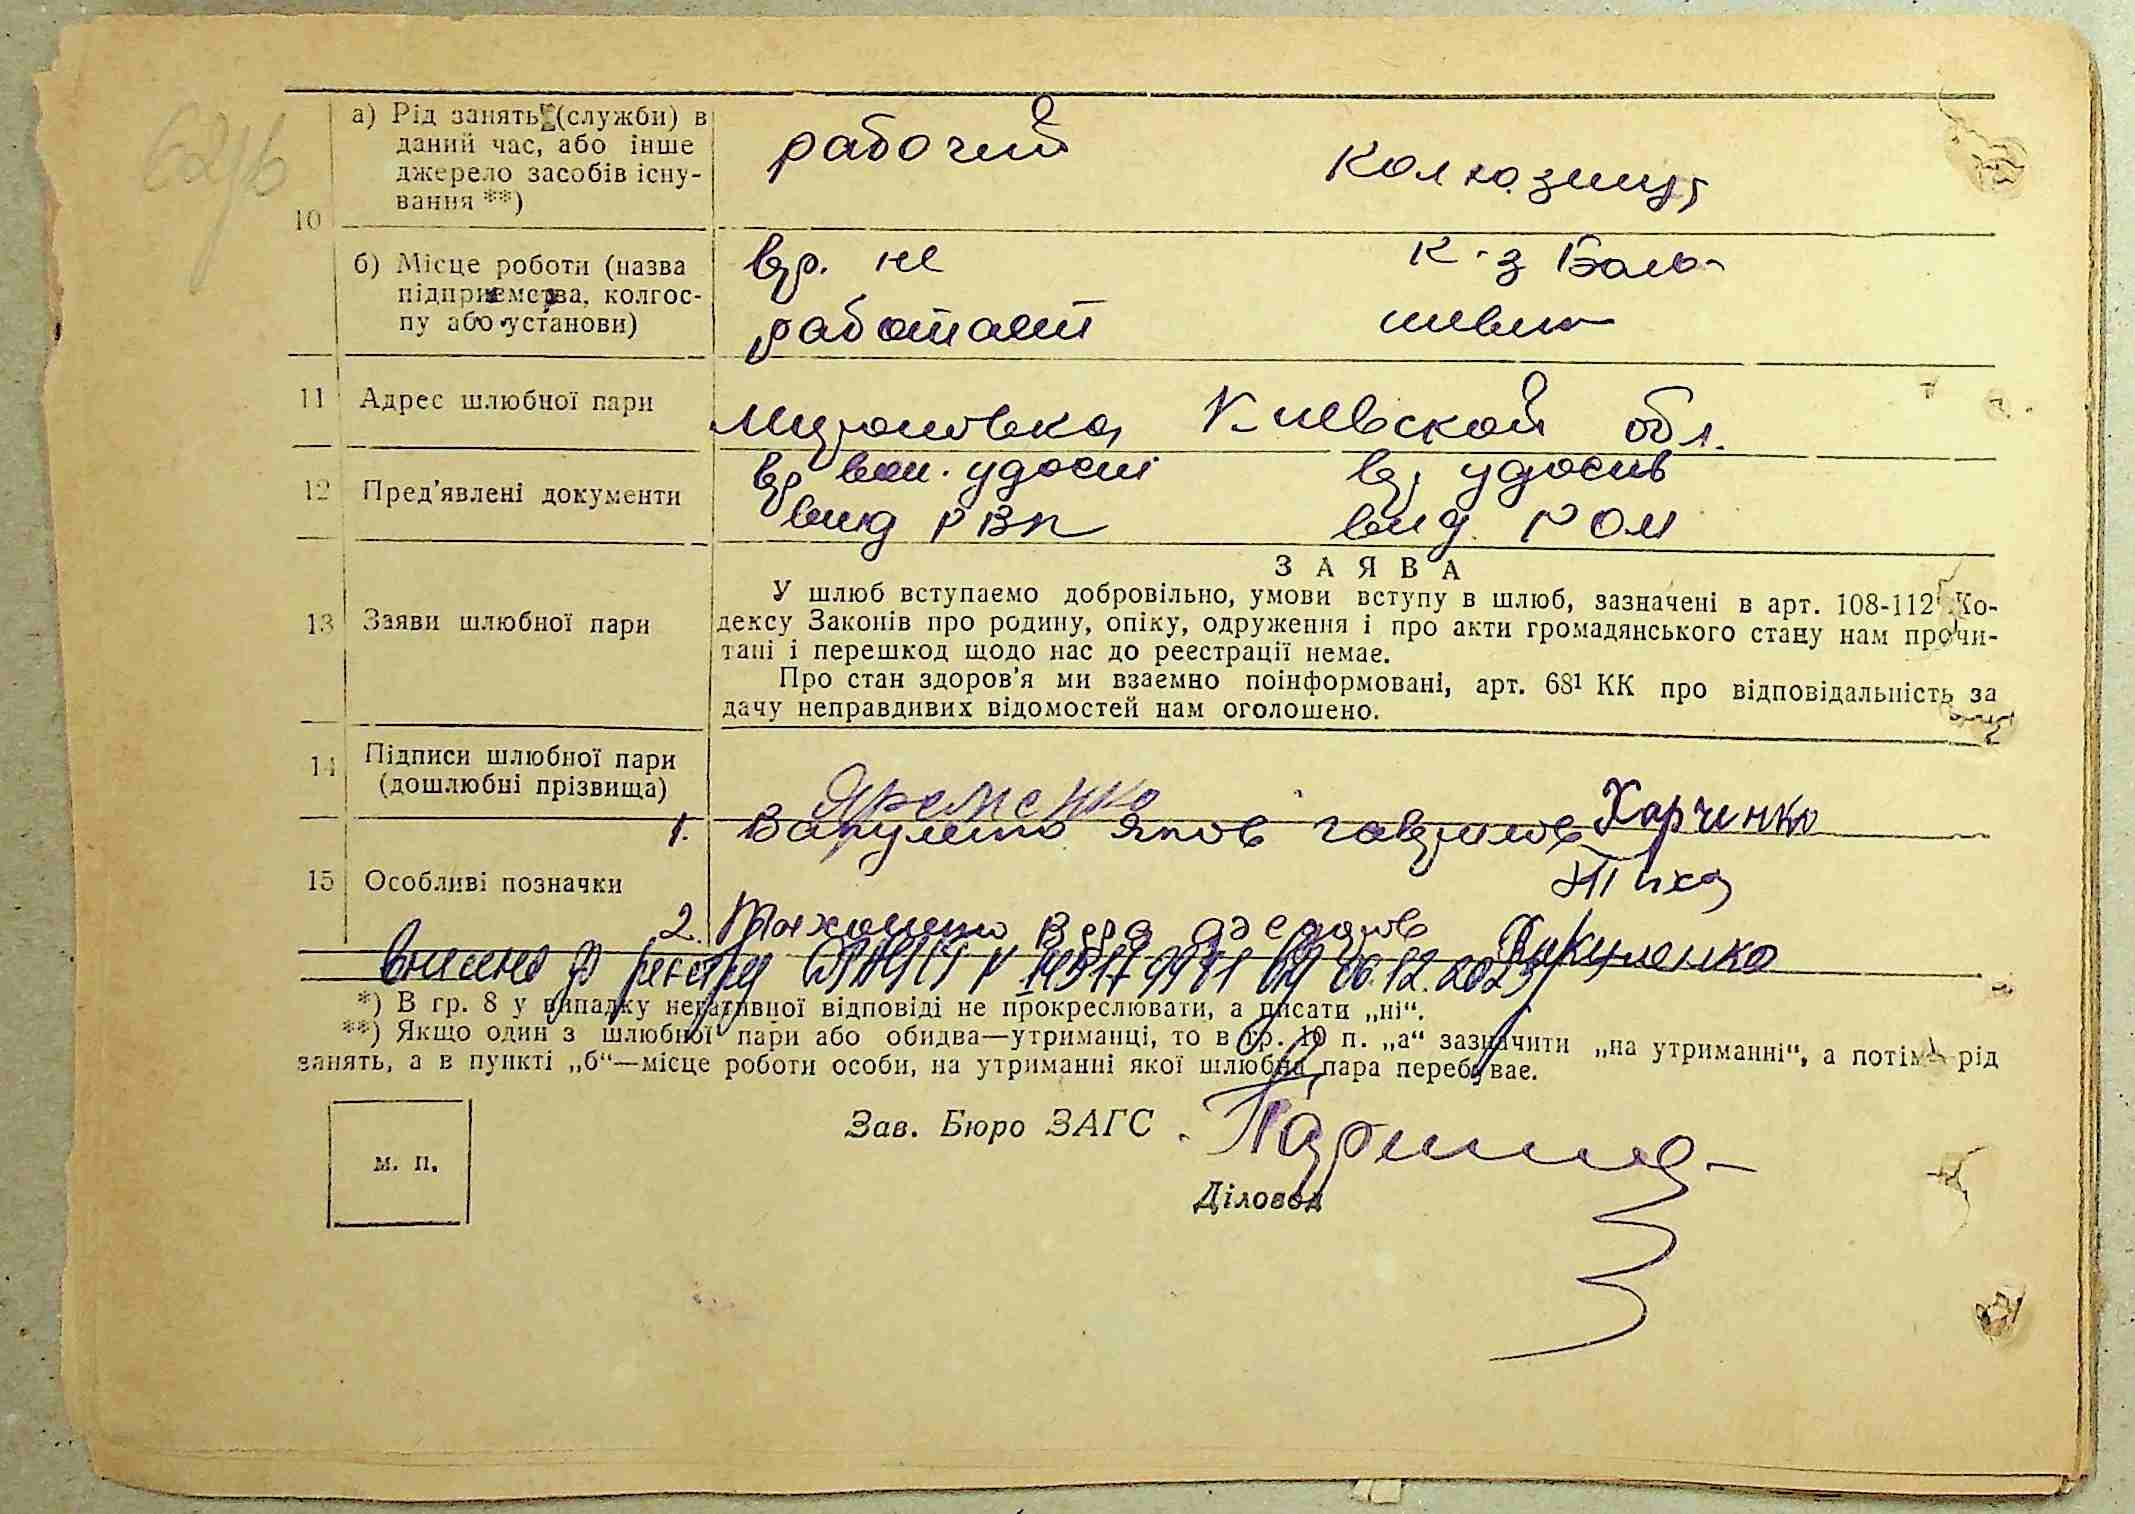 62/в
10
а) Рід занять (служби) в
даний час, або інше
джерело засобів існу-
вання **)
рабочий
колхозниц
б) Місце роботи (назва
підприємства, колгос-
пу або установи)
вр. не
работает
к-з Боль-
шевик
11 Адрес шлюбної пари
Мироновка Киевской обл.
12 Пред'явлені документи
вр вои. удост
вид РВК
вр. удостов
вид. РОМ
13 Заяви шлюбної пари
ЗАЯВА
У шлюб вступаємо добровільно, умови вступу в шлюб, зазначені в арт. 108-112 Ко-
дексу Законів про родину, опіку, одруження і про акти громадянського стану нам прочи-
тані і перешкод щодо нас до реєстрації немає.
Про стан здоров'я ми взаємно поінформовані, арт. 68¹ КК про відповідальність за
дачу неправдивих відомостей нам оголошено.
14 Підписи шлюбної пари
(дошлюбні прізвища)
Яременко
Харченко
15 Особливі позначки
1. Вакуленко Яков Гаврилов
2. Вера
Вакуленко
внесено до реєстру 06.12.2023
*) В гр. 8 у випадку негативної відповіді не прокреслювати, а писати „ні“.
**) Якщо один з шлюбної пари або обидва—утриманці, то в гр. 10 п. „а“ зазначити „на утриманні“, а потім рід
занять, а в пункті „б“—місце роботи особи, на утриманні якої шлюбна пара перебуває.
м. п.
Зав. Бюро ЗАГС
Діловод